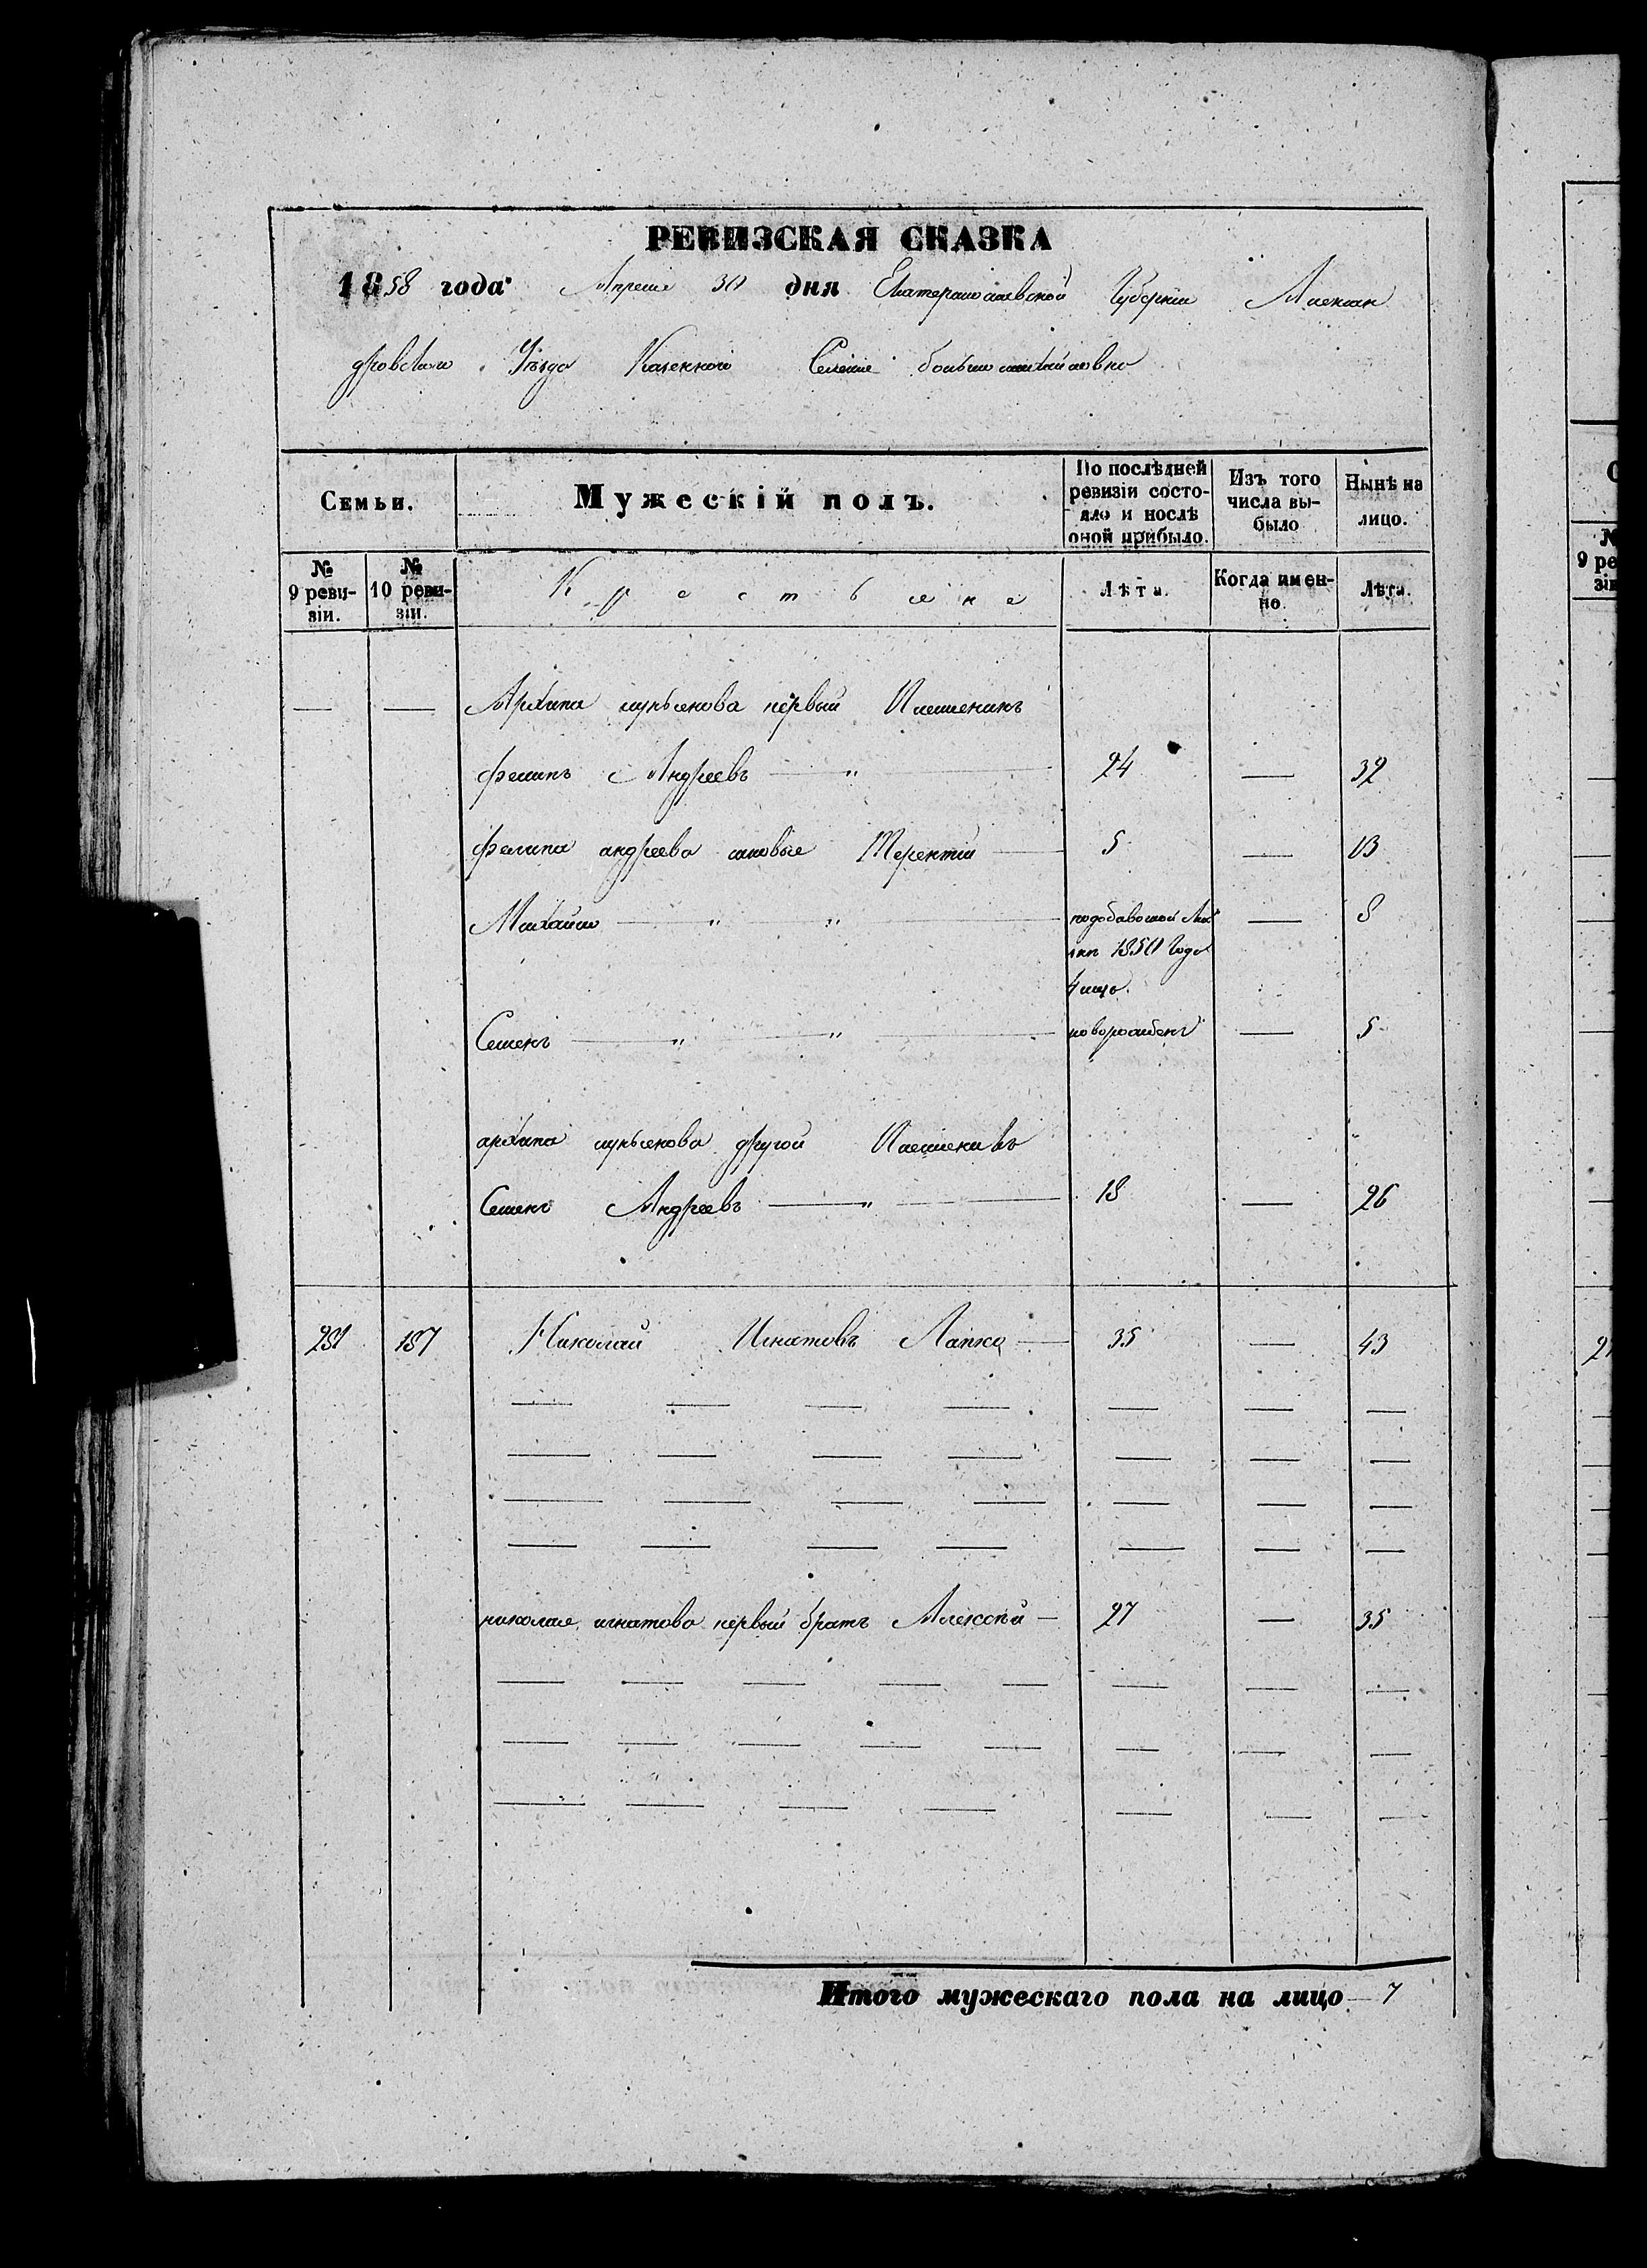 РЕВИЗСКАЯ СКАЗКА
1858 года Апреля 30 дня Екатеринославской Губернии Алексан
дровскаго Уѣзда Казеннаго Селенія большомихайловки
Семьи.
Мужескій полъ.
По послѣдней ревизіи состояло и послѣ оной прибыло.
Изъ того числа выбыло
Нынѣ на лицо.
№ 9 ревизіи.
№ 10 ревизіи.
Крестьяне
Лѣта.
Когда именно.
Лѣта.
— — Архипа первый Племеникъ
Филипъ Андреевъ — " — 24 — 32
Филипа андреева сыновья Терентій — 5 — 13
Михайло — " " — 8
1850 Года
Семенъ — " " — новорожденъ — 5
архипа другой Племеникъ
Семенъ Андреевъ — " — 18 — 26
231 187 Николай Игнатовъ Лапко — 35 — 43
николая игнатова первый братъ Алексѣй — 27 — 35
Итого мужескаго пола на лицо — 7
9 реви